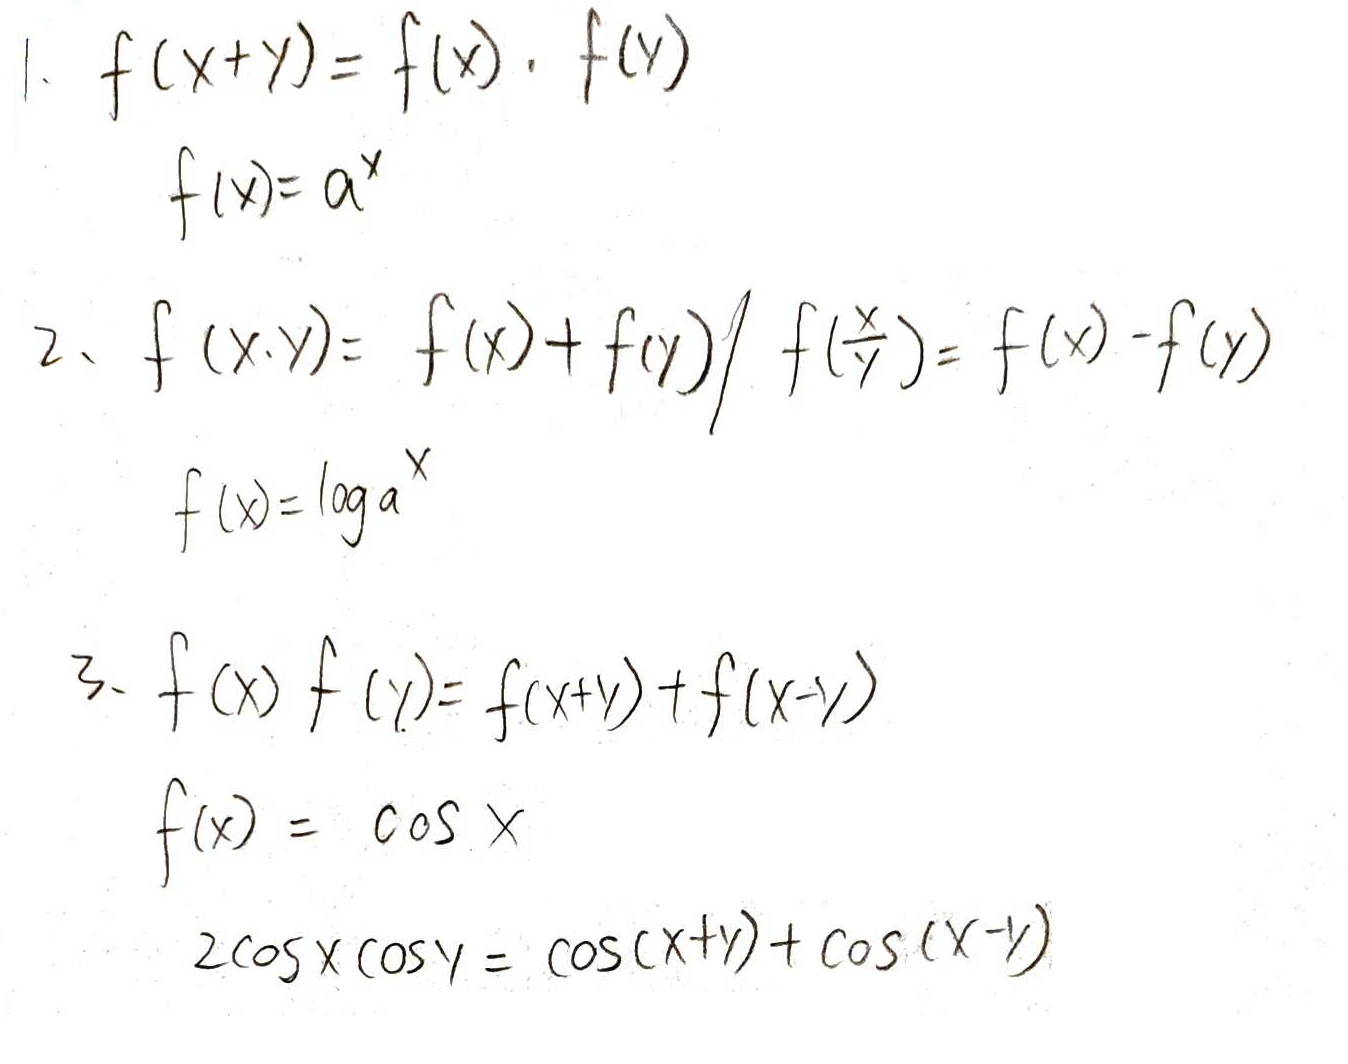 1. f(x+y)=f(x)·f(y)
f(x)=a^x
2、f(x·y)=f(x)+f(y)/f(x/y)=f(x)-f(y)
f(x)=log a^x
3、f(x)f(y)=f(x+y)+f(x-y)
f(x)=cos x
2cosxcosy=cos(x+y)+cos(x-y)